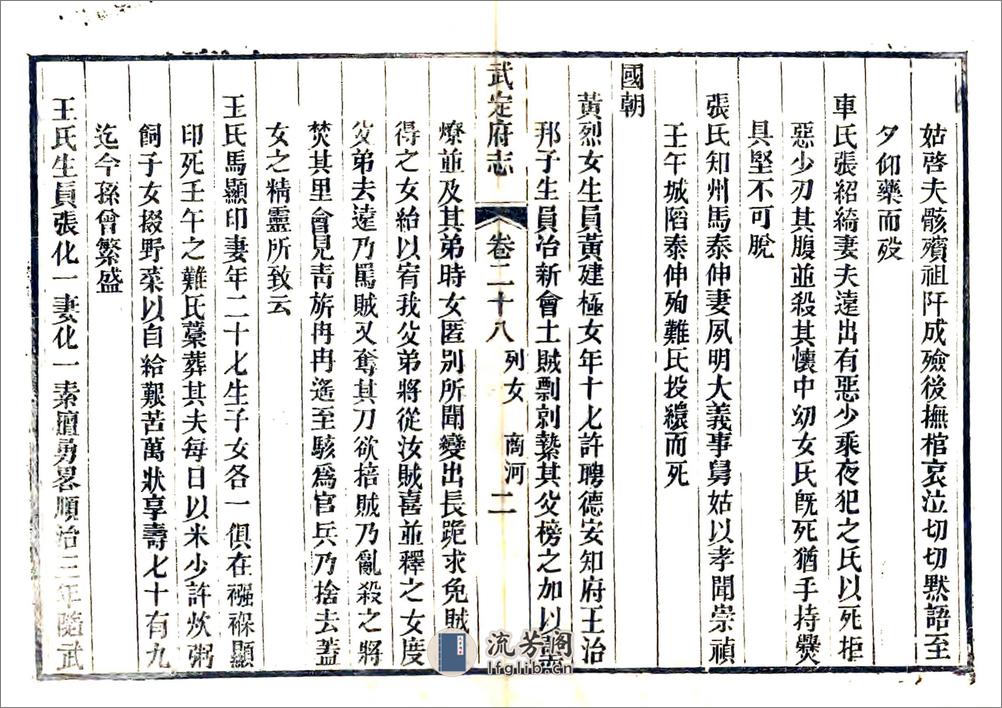 姑啓夫骸殯祖阡成殮後撫棺哀泣切切默語至
夕仰藥而歿
車氏張紹綺妻夫遠出有惡少乘夜犯之氏以死拒
惡少刃其腹並殺其懷中幼女氏旣死猶手持爨
具堅不可脫
張氏知州馬泰伸妻夙明大義事舅姑以孝聞崇禎
壬午城䧟泰伸殉難氏投繯而死
國朝
黃烈女生員黃建極女年十七許聘德安知府王治
邦子生員冶新會土賊剽剠縶其父榜之加以
燎並及其弟時女匿別所聞變出長跪求免賊
得之女紿以宥我父弟將從汝賊喜並釋之女度
父弟去遠乃罵賊又奪其刀欲掊賊乃亂殺之將
焚其里會見靑旂冉冉遙至駭爲官兵乃捨去蓋
女之精靈所致云
王氏馬顯印妻年二十七生子女各一俱在襁褓顯
印死壬午之難氏藁葬其夫每日以米少許炊粥
飼子女掇野菜以自給艱苦萬狀享壽七十有九
迄今孫曾繁盛
王氏生員張化一妻化一素膽勇畧順治三年隨武
武定府志
卷二十八
列女 商河 二
流芳阁
lfglib.cn